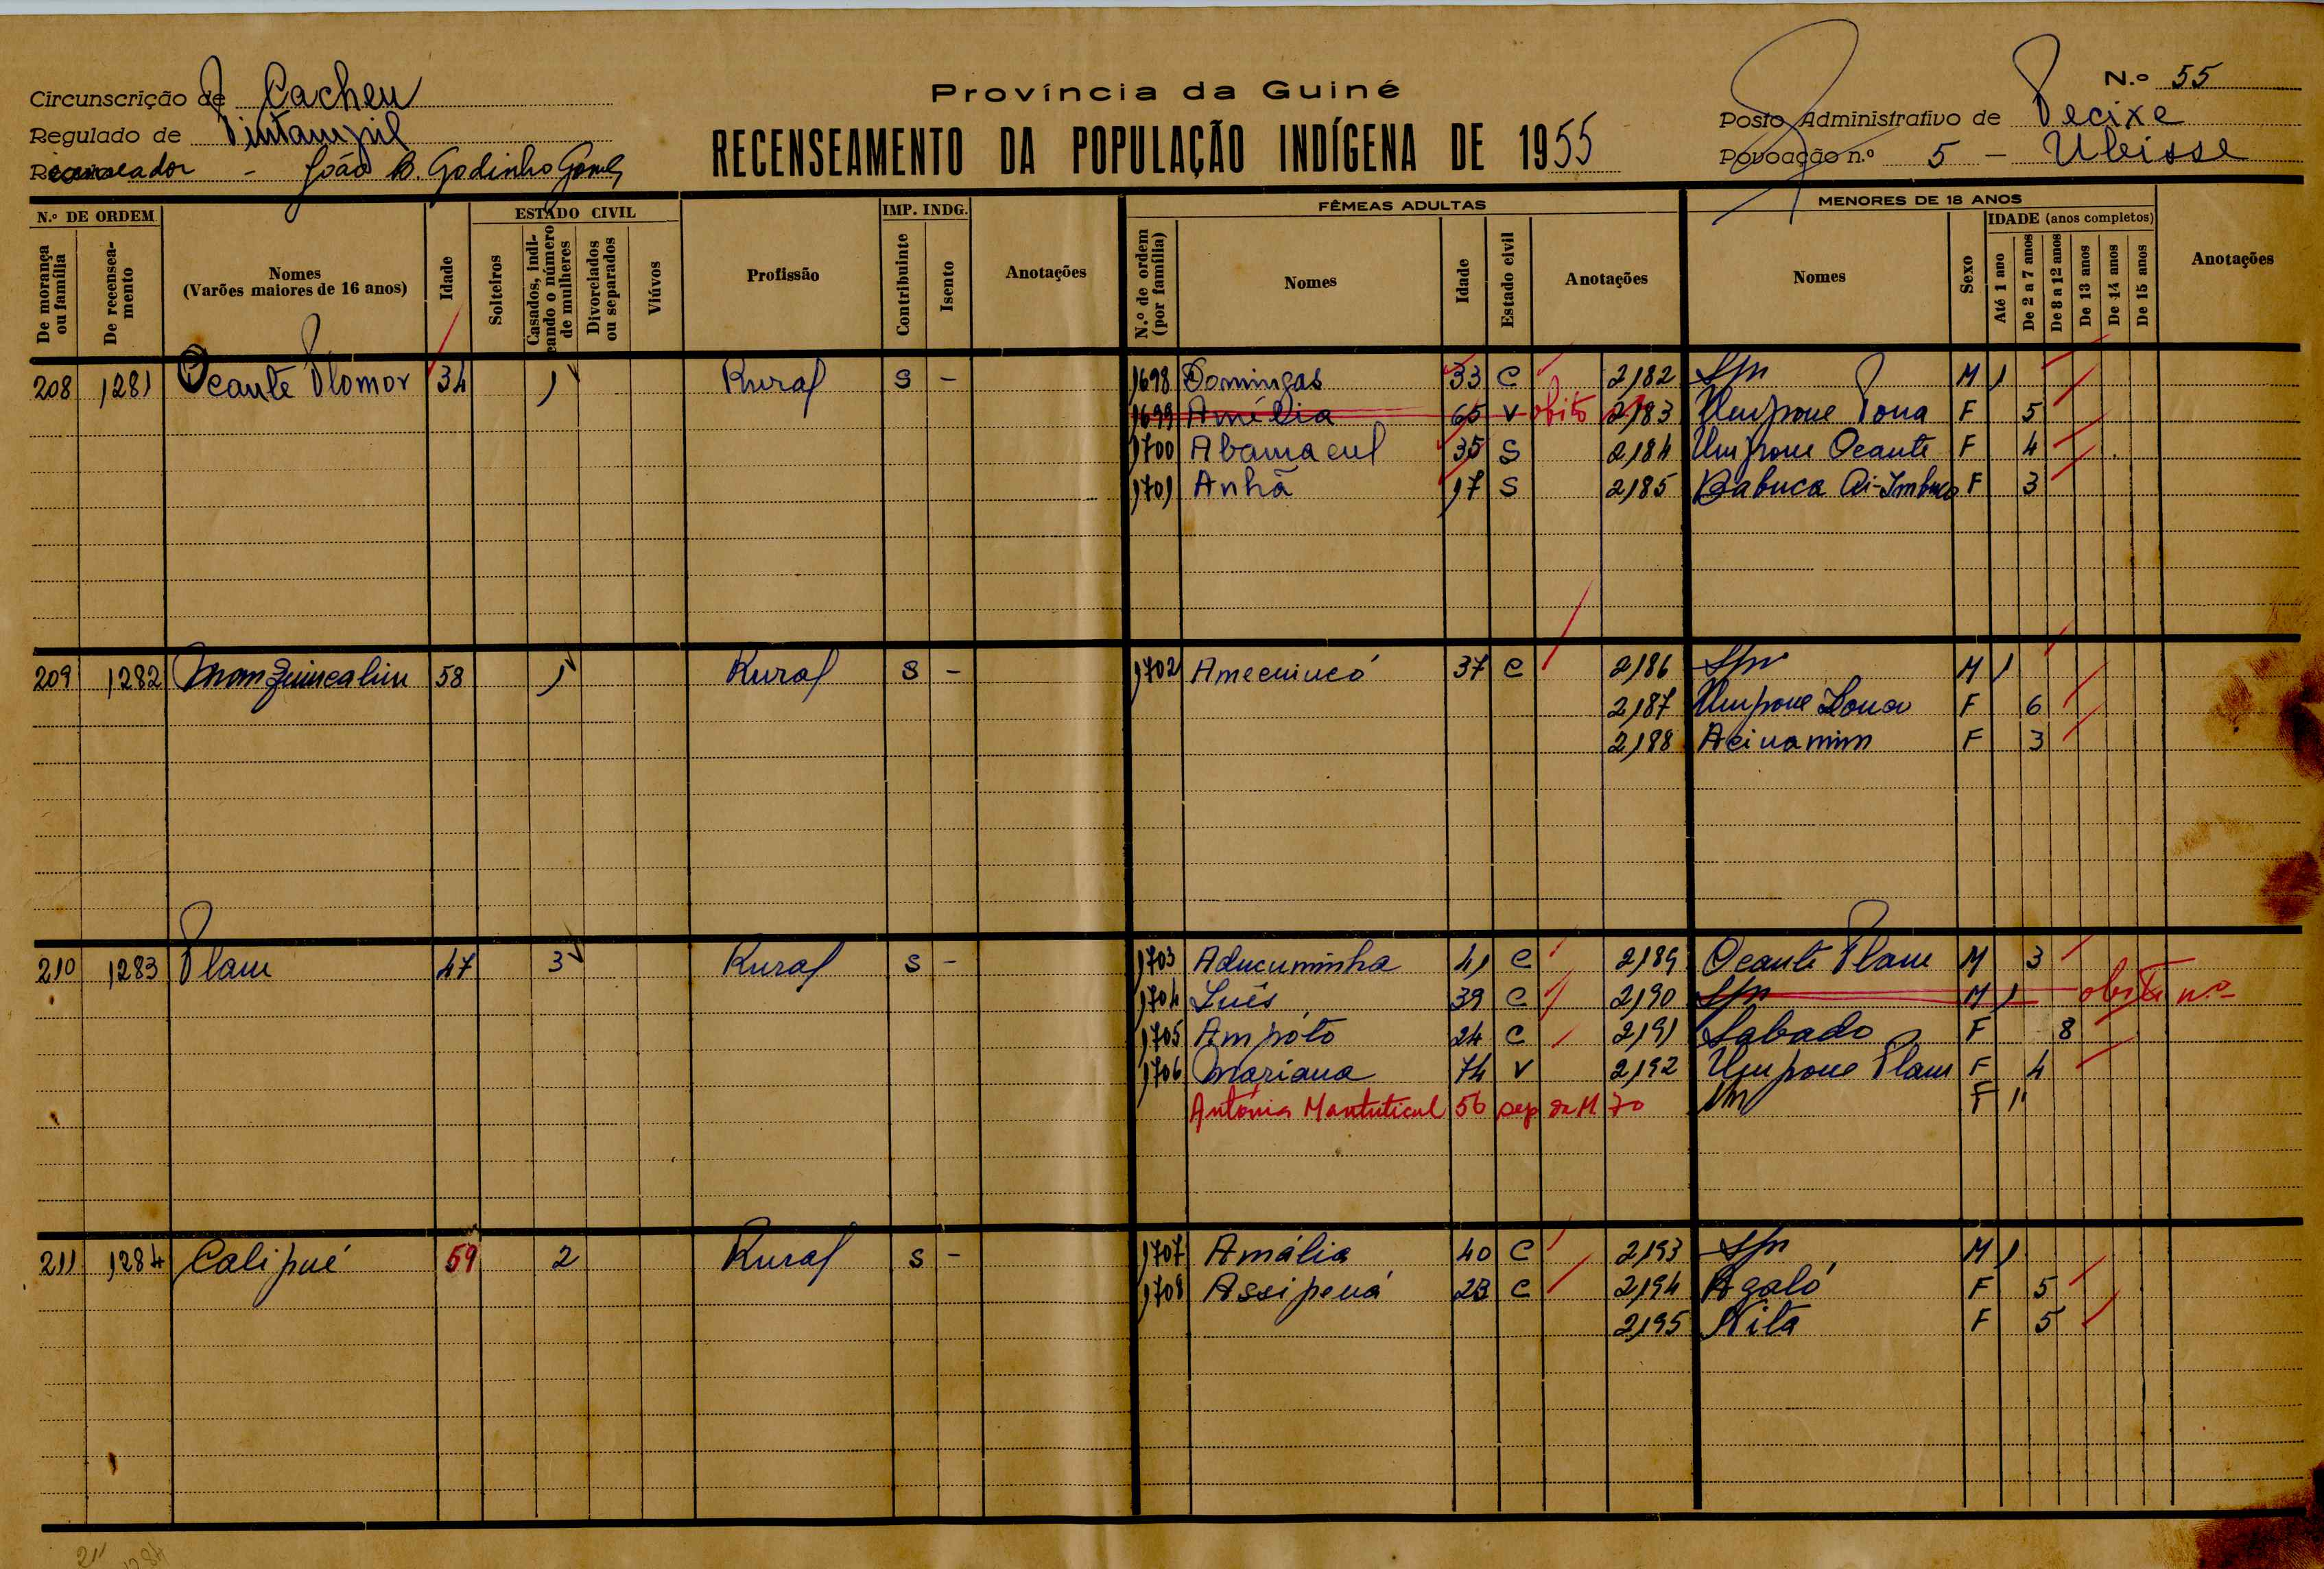 Província da Guiné
N.º 55
Circunscrição de Cacheu
Regulado de Pintampil
Recenseador - João B. Godinho Gomes
RECENSEAMENTO DA POPULAÇÃO INDÍGENA DE 1955
Posto Administrativo de Pecixe
Povoação n.º 5 - Ubisse
N.º DE ORDEM
De morança ou família
De recenseamento
Nomes
(Varões maiores de 16 anos)
Idade
ESTADO CIVIL
Solteiros
Casados, indicando o número de mulheres
Divorciados ou separados
Viúvos
Profissão
IMP. INDG.
Contribuinte
Isento
Anotações
FÊMEAS ADULTAS
N.º de ordem (por família)
Nomes
Idade
Estado civil
Anotações
MENORES DE 18 ANOS
Nomes
Sexo
IDADE (anos completos)
Até 1 ano
De 2 a 7 anos
De 8 a 12 anos
De 13 anos
De 14 anos
De 15 anos
Anotações
208 1281 Ocante Plomor 34 1 Rural S - 1698 Domingas 33 C 2182 M 1
1699 Amélia 65 V obito 2183 Umpone Pona F 5
1700 Abamacul 35 S 2184 Umpone Ocante F 4
1701 Anhã 17 S 2185 Babuca F 3
209 1282 58 1 Rural S - 1702 37 C 2186 M 1
2187 Umpone F 6
2188 Acinamim F 3
210 1283 Plam 47 3 Rural S - 1703 Aducuminha 41 C 2189 Ocante Plam M 3
1704 Luís 39 C 2190 M 1 obito n.º
1705 Ampóto 24 C 2191 Sabado F 8
1706 Mariana 74 V 2192 Umpone Plam F 4
Antónia Mantutical 56 sep da M 70 F 1
211 1284 Calipué 59 2 Rural S - 1707 Amália 40 C 2193 M 1
1708 Assipená 23 C 2194 Agaló F 5
2195 Rita F 5
211 1284